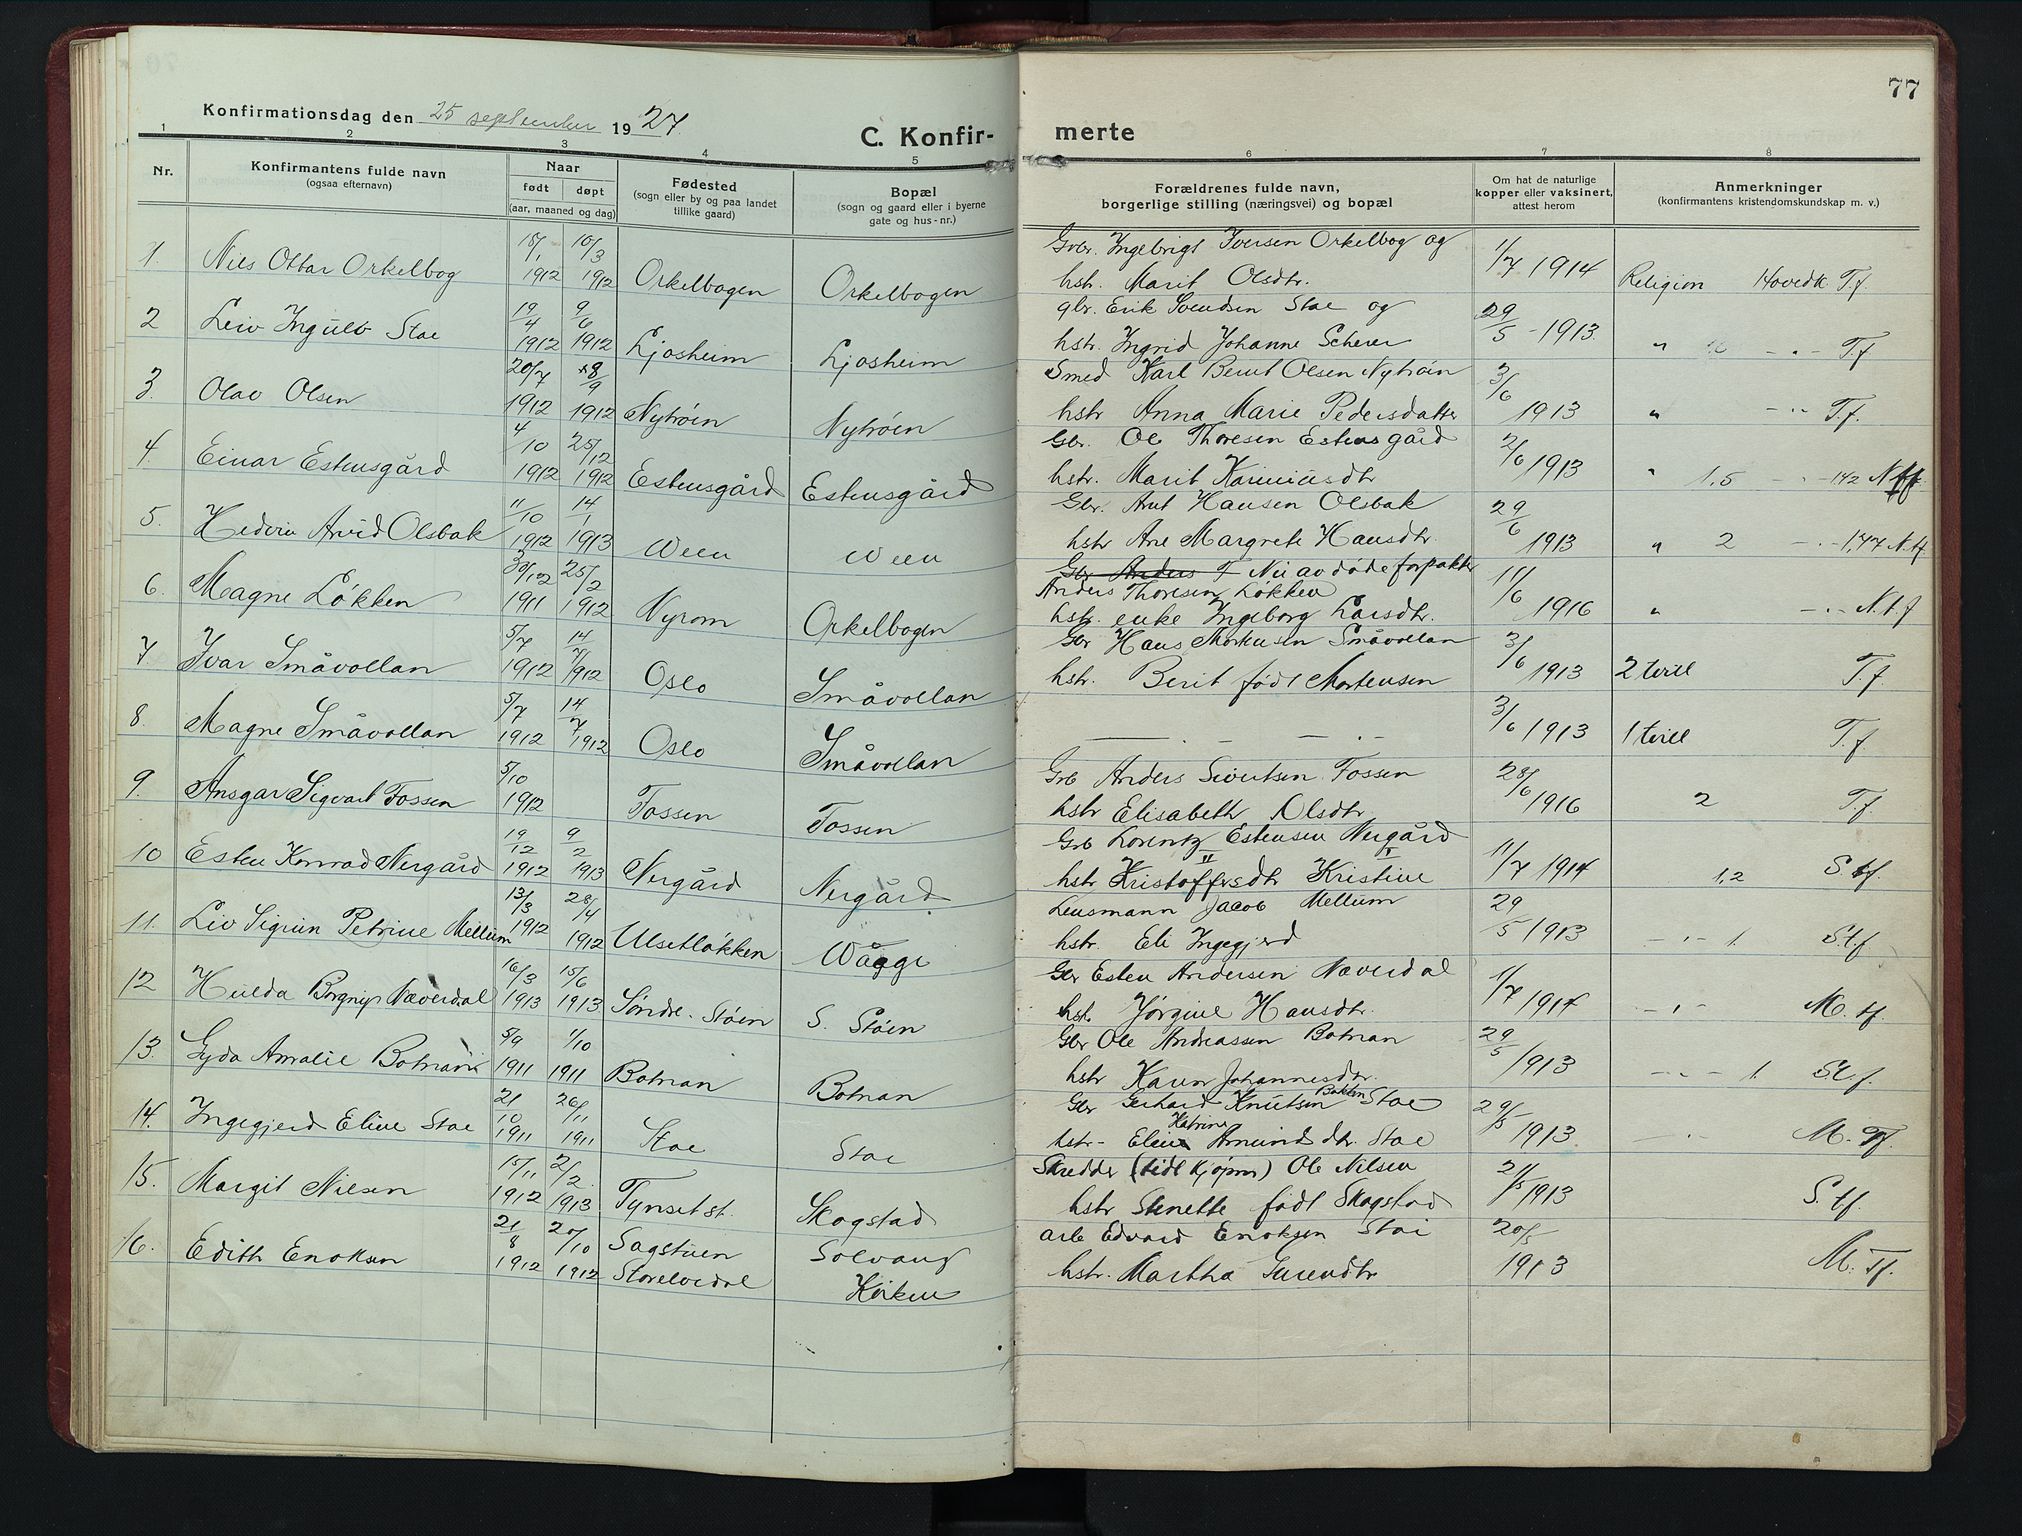 77
Konfirmationsdag den 25 september 1927.
C. Konfir-
merte
1 2 3 4 5 6 7 8
Nr.
Konfirmantens fulde navn
(ogsaa efternavn)
Naar
født døpt
(aar, maaned og dag)
Fødested
(sogn eller by og paa landet
tillike gaard)
Bopæl
(sogn og gaard eller i byerne
gate og hus-nr.)
Forældrenes fulde navn,
borgerlige stilling (næringsvei) og bopæl
Om hat de naturlige
kopper eller vaksinert,
attest herom
Anmerkninger
(konfirmantens kristendomskundskap m. v.)
1. Nils Ottar Orkelbog 18/1 1912 10/3 1912 Orkelbogen Orkelbogen
Gbr. Ingebrigt Iversen Orkelbog og
hstr. Marit Olsdtr. 1/7 1914 Religion Hovedk. T.f.
2 Leiv Ingulv Stae 19/4 1912 9/6 1912 Ljosheim Ljosheim
gbr. Erik Svendsen Stae og
hstr. Ingrid Johanne Scherer 29/5-1913. " T.f
3. Olav Olsen 20/7 1912 8/9 1912 Nytrøen Nytrøen
Smed Karl Bernt Olsen Nytrøen
hstr Anna Marie Pedersdatter 3/6 1913 " T.f.
4. Einar Estensgård 4/10 1912 25/12 1912 Estensgård Estensgård
Gbr. Ole Thoresen Estensgård
hstr. Marit 2/6 1913 " 1,5
5. Arvid Olsbak 11/10 1912 14/1 1913 Ween Ween
Gbr. Arnt Hansen Olsbak
hstr Ane Margrete Hansdtr. 29/6 1913 " 2 N.tf
6. Magne Løkken 30/12 1911 25/2 1912 Nyrom Orkelbogen
Gbr Anders T Nu avdøde forpakter
Anders Thoresen Løkken
hstr. enke Ingeborg Larsdtr. 11/6 1916 " N.t.f
7 Ivar Småvollan 5/7 1912 14/7 1912 Oslo Småvollan
Gbr Hans Mortensen Småvollan
hstr. Berit født Mortensen 3/6 1913 2 tvill T.f.
8. Magne Småvollan 5/7 1912 14/7 1912 Oslo Småvollan
3/6 1913 1 tvill T.f.
9. Ansgar Sigvart Tossen 5/10 1912 Tossen Tossen
Grb Anders Sivertsen Tossen
hstr Elisabeth Olsdtr. 28/6 1916 2 T.f.
10 Esten Konrad Nergård 19/12 1912 9/2 1913 Nergård Nergård
Grb Lorentz Estensen Nergård
hstr Kristoffersdtr Kristine 11/7 1914 1,2 S.tf.
11. Liv Sigrun Petrine Mellum 13/3 1912 28/4 1912 Ulsetløkken Wågge
Lensmann Jacob Mellum
hstr. Eli Ingegjerd 29/5 1913 1. S.t.f
12 Hulda Borgny Næverdal 16/3 1913 15/6 1913 Søndre. Støen S. Støen
Gbr Esten Andersen Næverdal
hst. Jørgine Hansdtr. 1/7 1914 M. tf.
13. Gyda Amalie Botnan 5/9 1911 1/10 1911 Botnan Botnan
Gbr Ole Andreassen Botnan
hstr Karen Johannesdtr. 29/5 1913 1. St.f.
14. Ingegjerd Eline Stae 21/10 1911 26/11 1911 Stae Stae
Gbr Gerhard Knutsen Bakken Stae
hstr- Eline Katrine Amundsdtr. Stae 29/5 1913. M. Tf.
15. Margit Nilsen 15/11 1912 2/2 1913 Tynset st. Skogstad
Skredder (tidl kjøpm) Ole Nilsen
hstr Stenette født Skogstad 21/5 1913 S.tf.
16. Edith Enoksen 21/8 1912 20/10 1912 Sagstuen Storelvedal Solvang Kirken
Arb Edvard Enoksen Stai
hstr. Martha 20/5 1913 M. Tf.